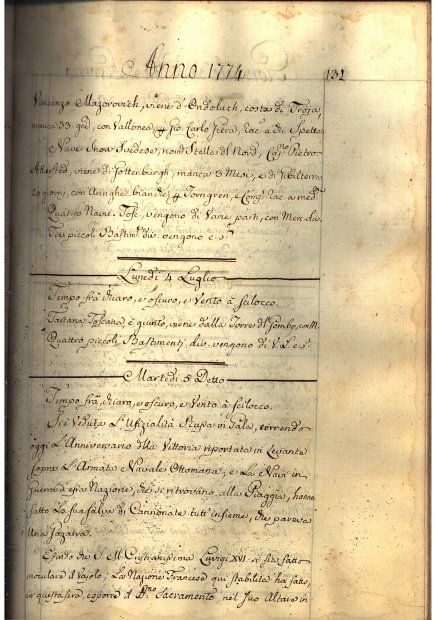 Anno 1774
132
Vincenzo Mazorovich, viene d'Endoluch, costa di Troja,
manca 33 gni, con Vallonea Gio: Carlo a di Spetta
Nave Snow Svedese, nomta Stella di Nord, Capno Pietro
viene di Gottenburgh, manca 3 Mesi, e di Gibilterra
20 giorni, con Aringhe bianche, Torngren, e Comp:
Quattro Navi: Tosc: vengono di Varie parti, con Men
Tre piccoli Bastimti div: vengono c. s.
Lunedi 4 Luglio
Tempo frà chiaro, e oscuro, e Vento à Scilocco.
Tartana Toscana, è quinto, viene dalla Torre
Quattro piccoli Bastimenti div: vengono di V. P. c. s.
Martedi 5 Detto
Tempo frà chiaro, e oscuro, e Vento à Scilocco.
veduta L'Ufizialità Russa in Gala, correndo
oggi L'Anniversario della Vittoria reportata in Levante
sopra L'Armata Navale Ottomana, e Le Navi in
Guerra d'essa Nazione, che si ritrovano alla Piaggia, hanno
fatto La sua salva di Cannonate tutt'insieme, che pareva
Una
Essendo che S. M. Cristianissima Luvigi XVI. si è fatto
inoculare il Vajolo; La Nazione Francese qui stabilita hà fatto,
in questa sera, esporre il Sacramento, nel Suo Altare in